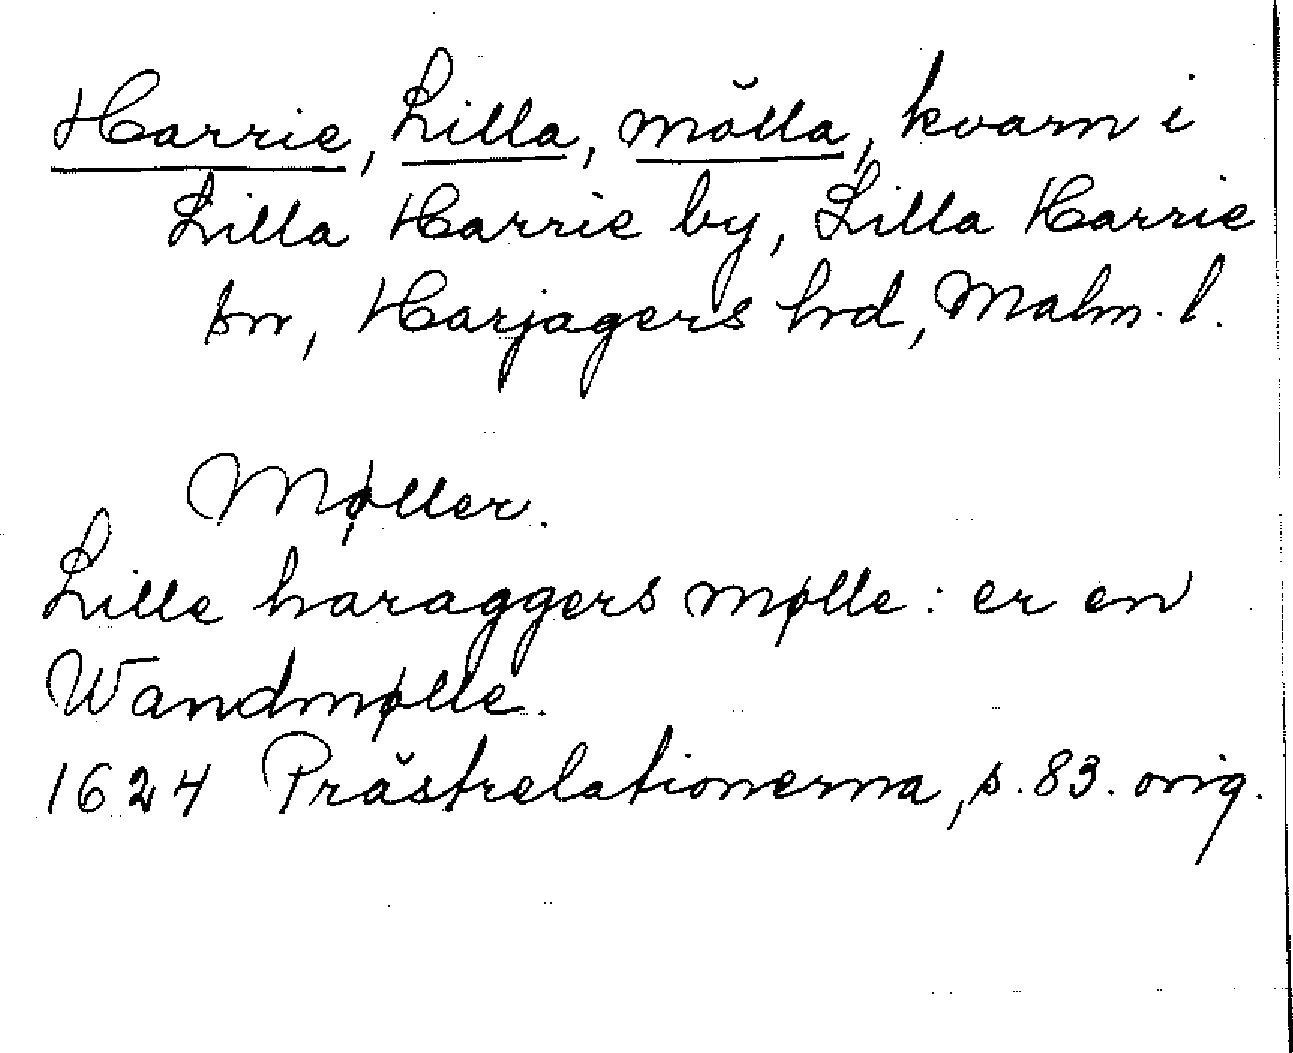 Harrie, Lilla, mölla, kvarn i
Lilla Harrie by, Lilla Harrie
sn, Harjagers hrd, Malm. l.
Møller.
Lille haraggers mølle: er en
Wandmølle.
1624 Prästrelationerna, s. 83. orig.